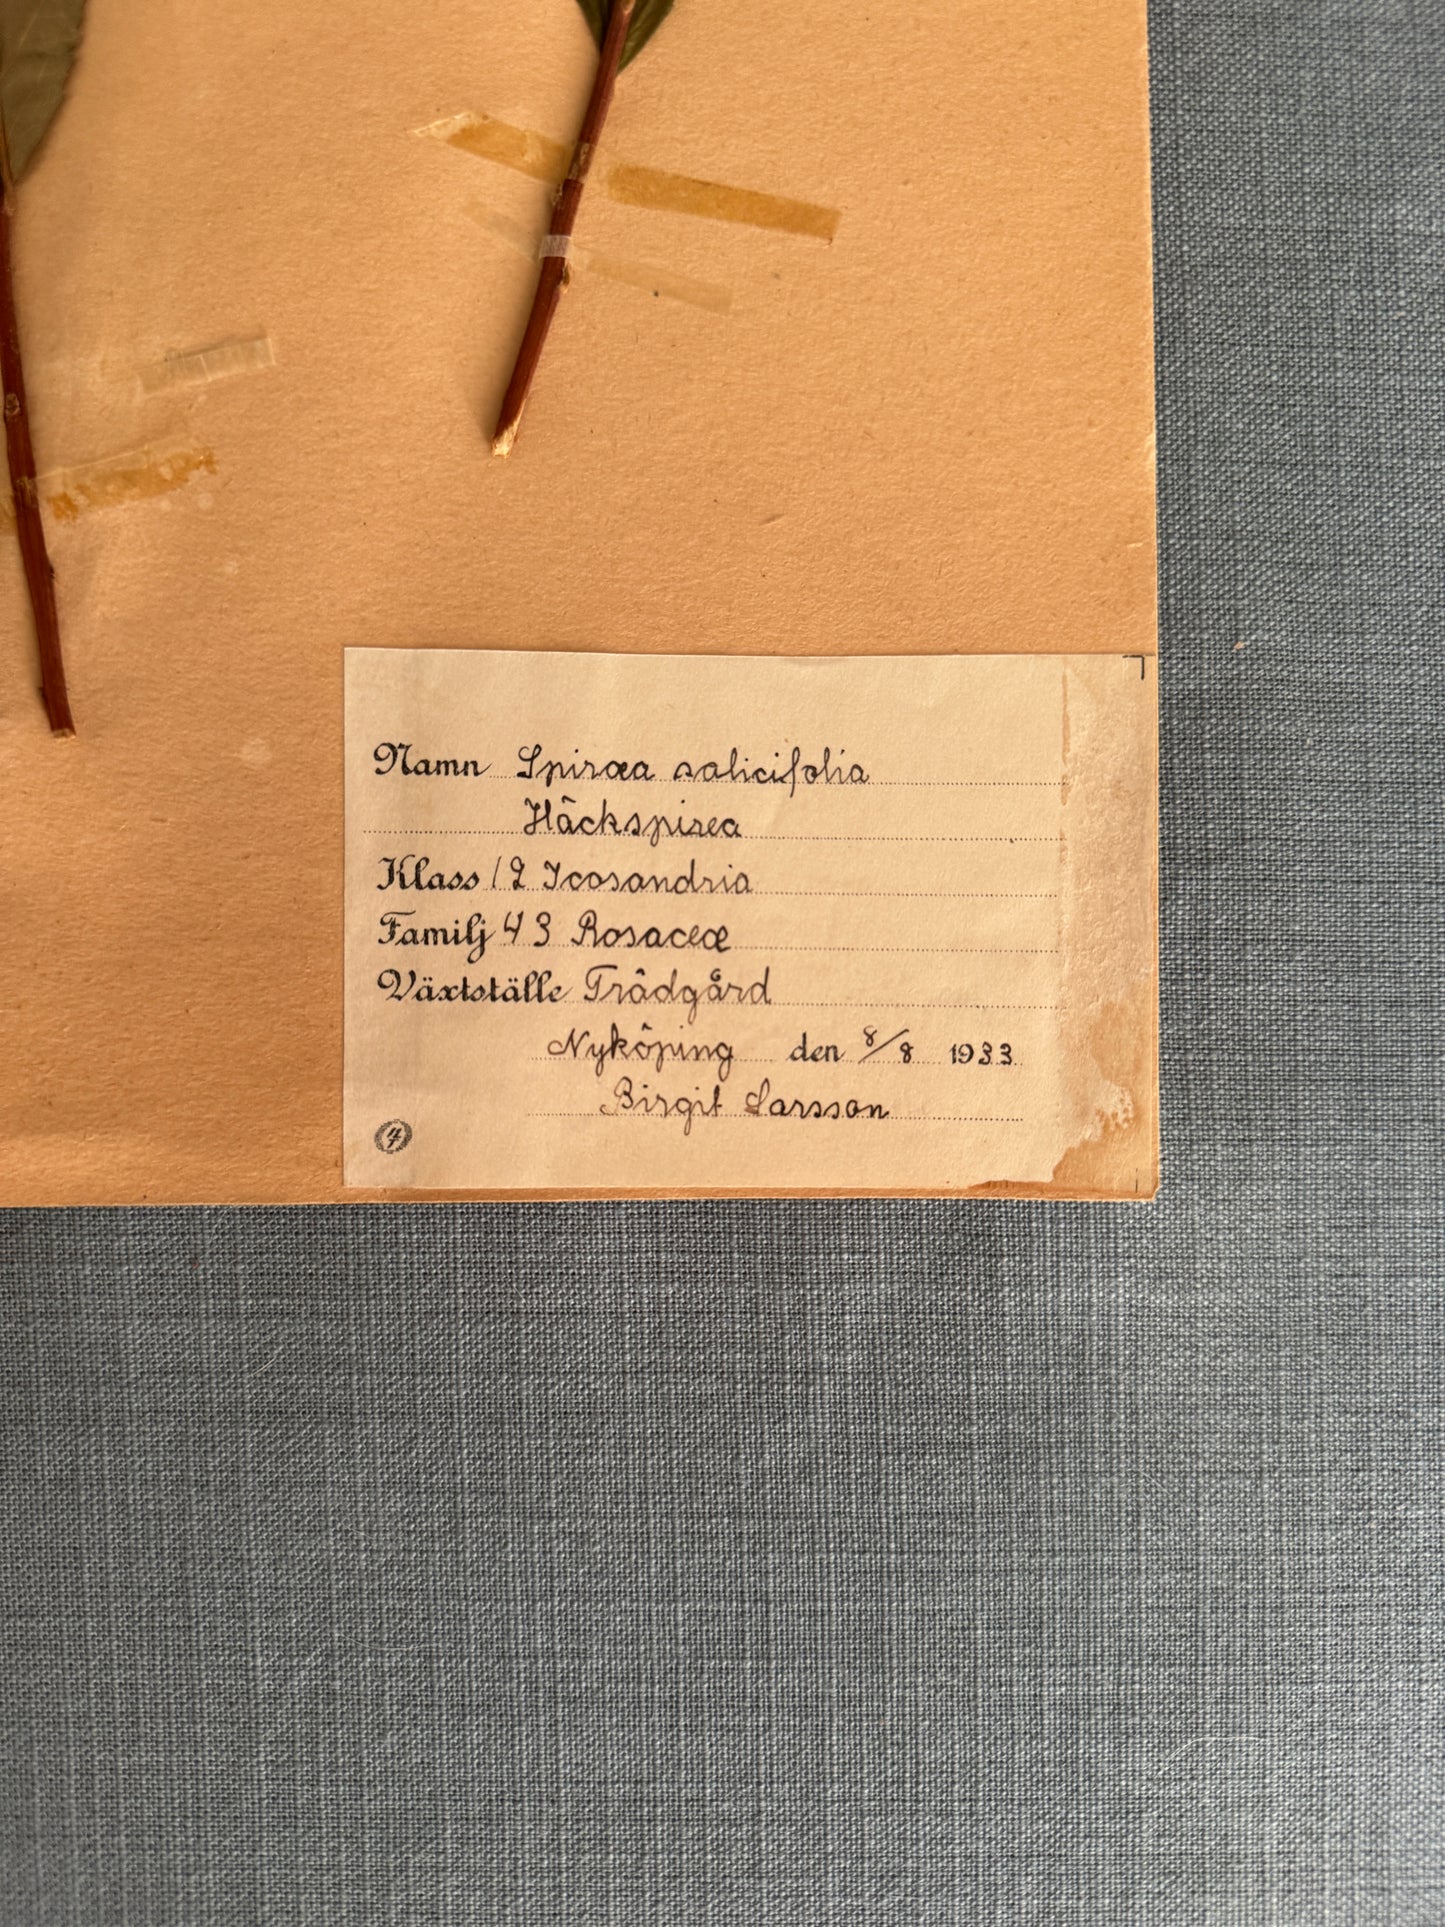 Namn Spiræa salicifolia
Häckspirea
Klass 12 Icosandria
Familj 43 Rosaceæ
Växtställe Trädgård
Nyköping den 8/8 1933
Birgit Larsson
4